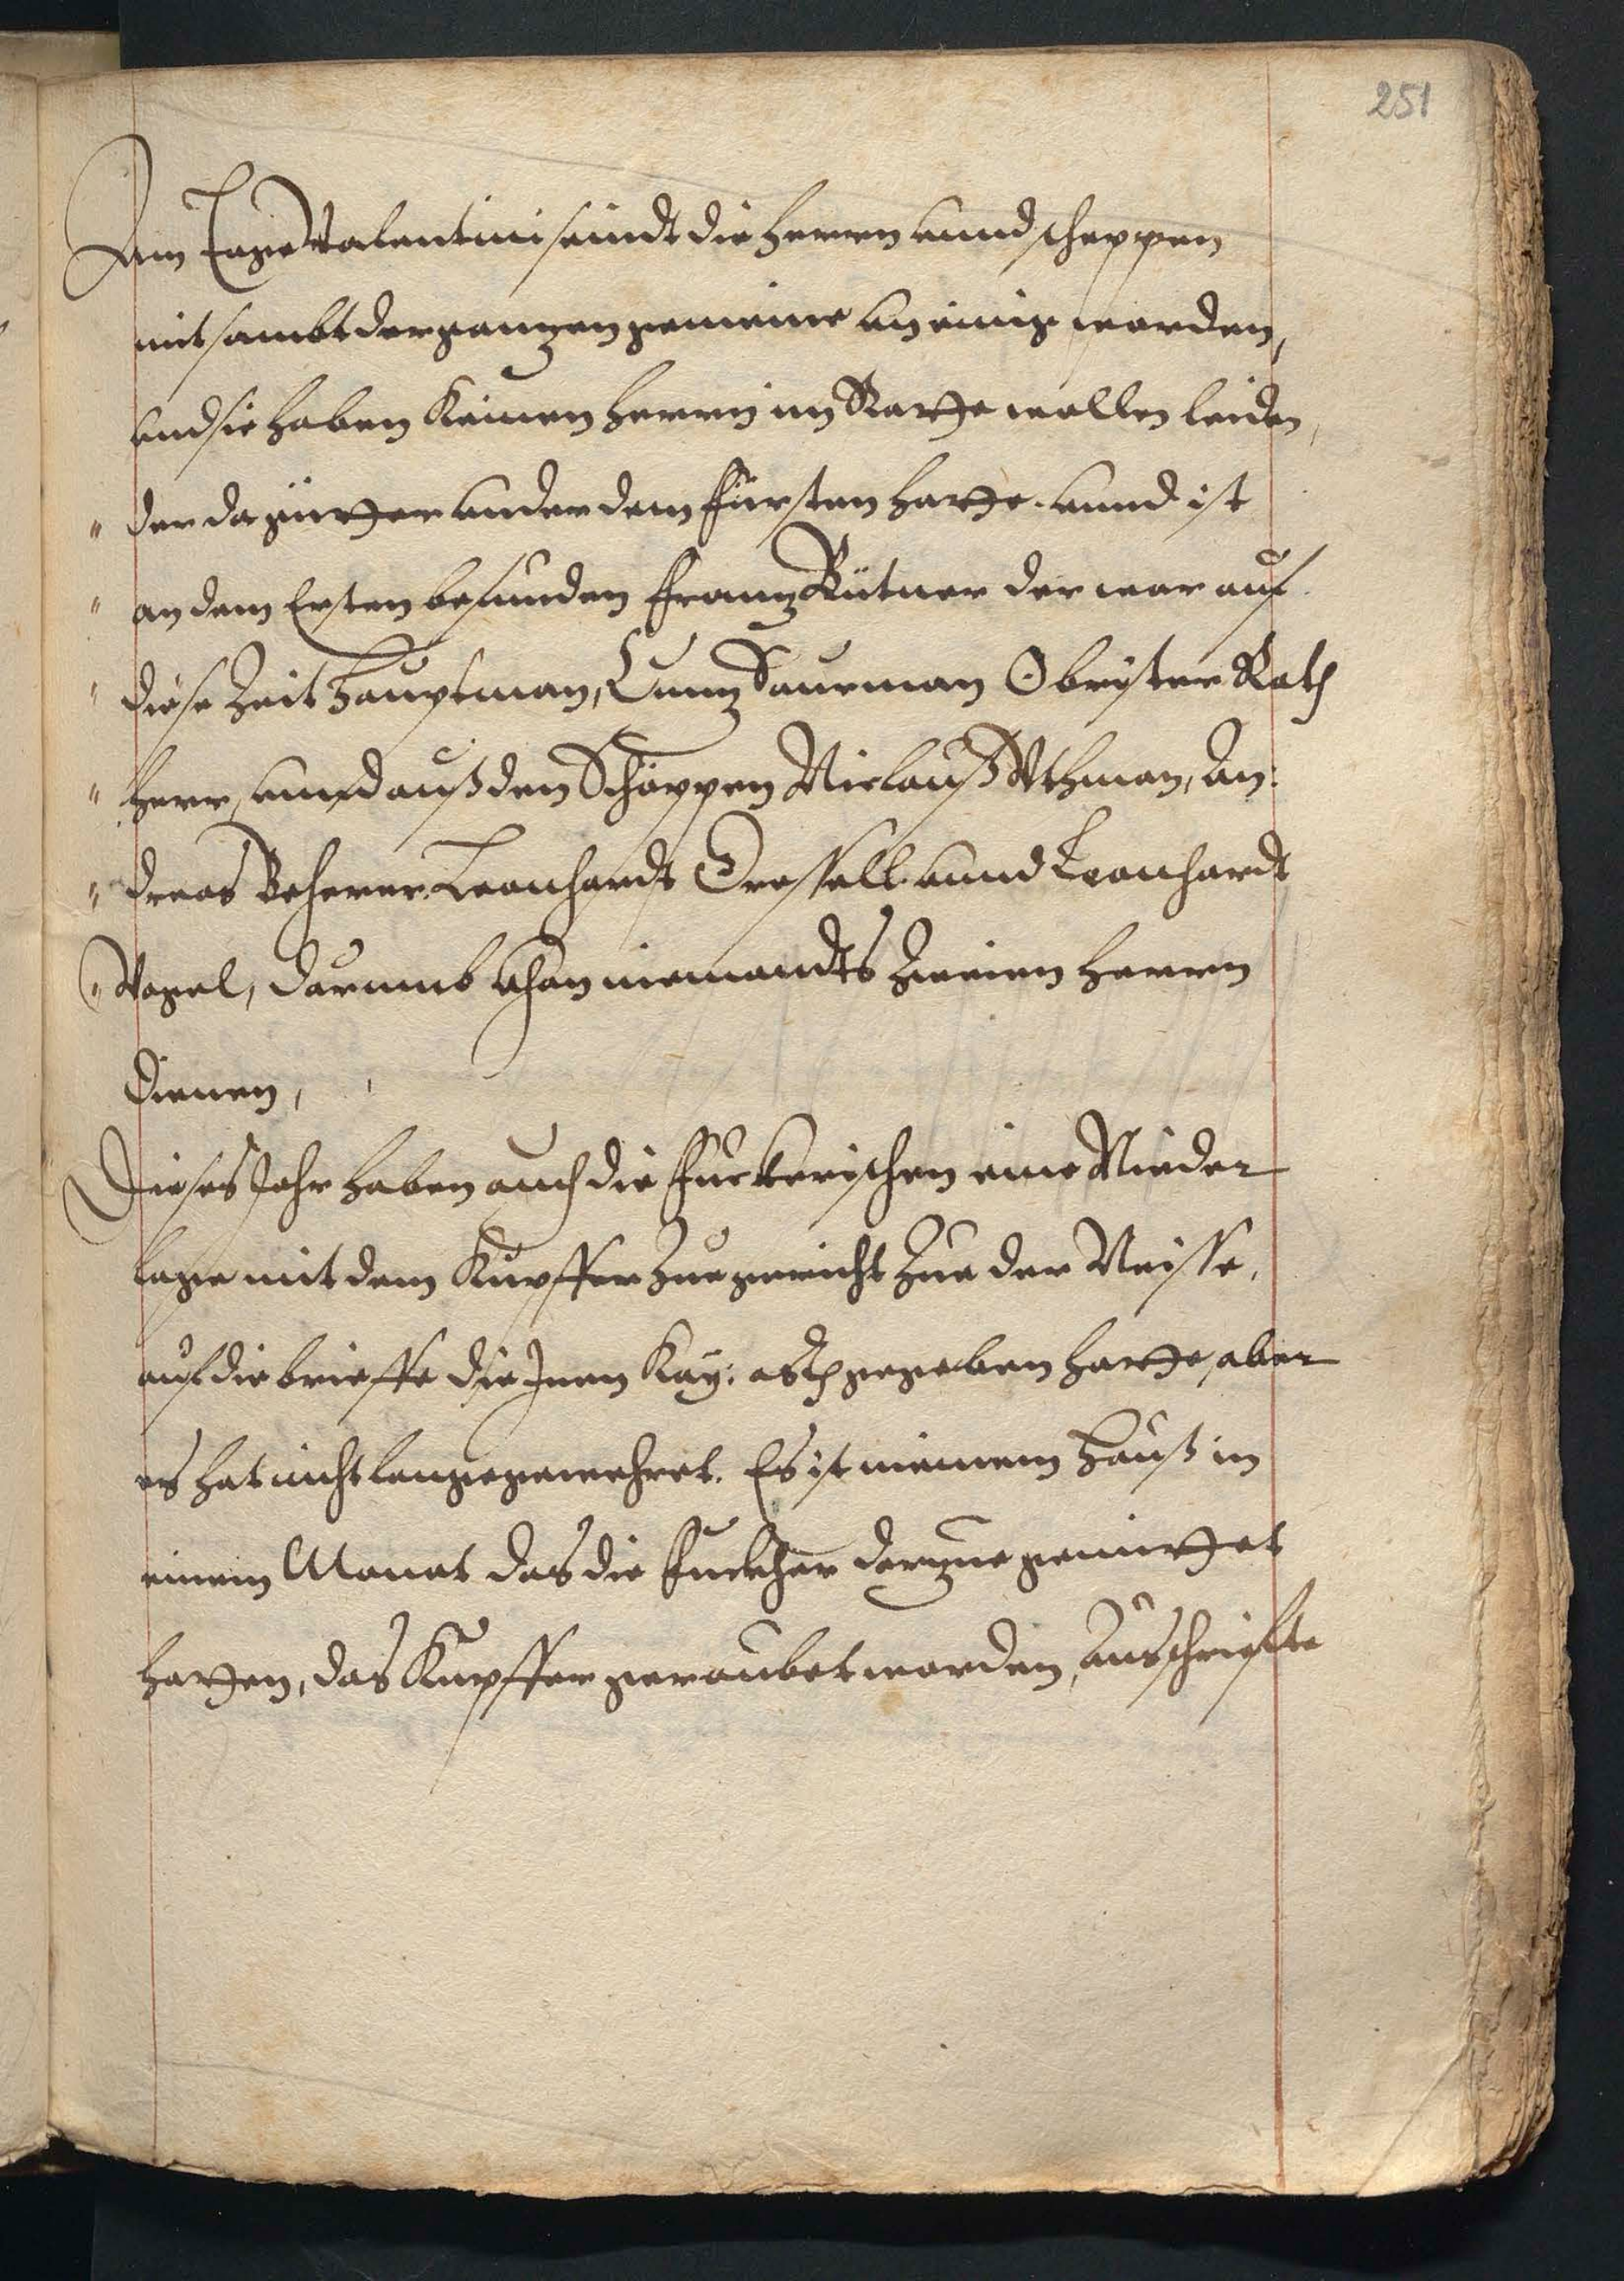 251
Am Tage Valentini seindt die Herren unnd scheppen
mit sambt der ganzen gemeine an einig worden,
und sie haben Keinen Herrn im Rathe wollen leiden,
" der da gütter under dem Fürsten hatte. unnd ist
" an dem Ersten befunden Franz Bütner der war auf
" diese Zeit Hauptman, Cunz Saurman Obrister Rath
" Herr, unnd auß den Schöppen Niclauß Uthman, An:
" dreas Beherer Leonhardt Dressell unnd Leonhardt
" Vogel, darumb khan niemandts Zweien Herren
dienen,
Dieses Jahr haben auch die Fuckerischen eine Nieder
lage mit dem Kupffer Zuegericht Zue der Neisse,
auf die brieffe die Inen Kay: gegeben hatte, aber
es hat nicht lange gewehret. Es ist in einem Hauß in
einem Monat das die Fuckher darzue gemittet
hatten, das Kupffer geraubet worden,